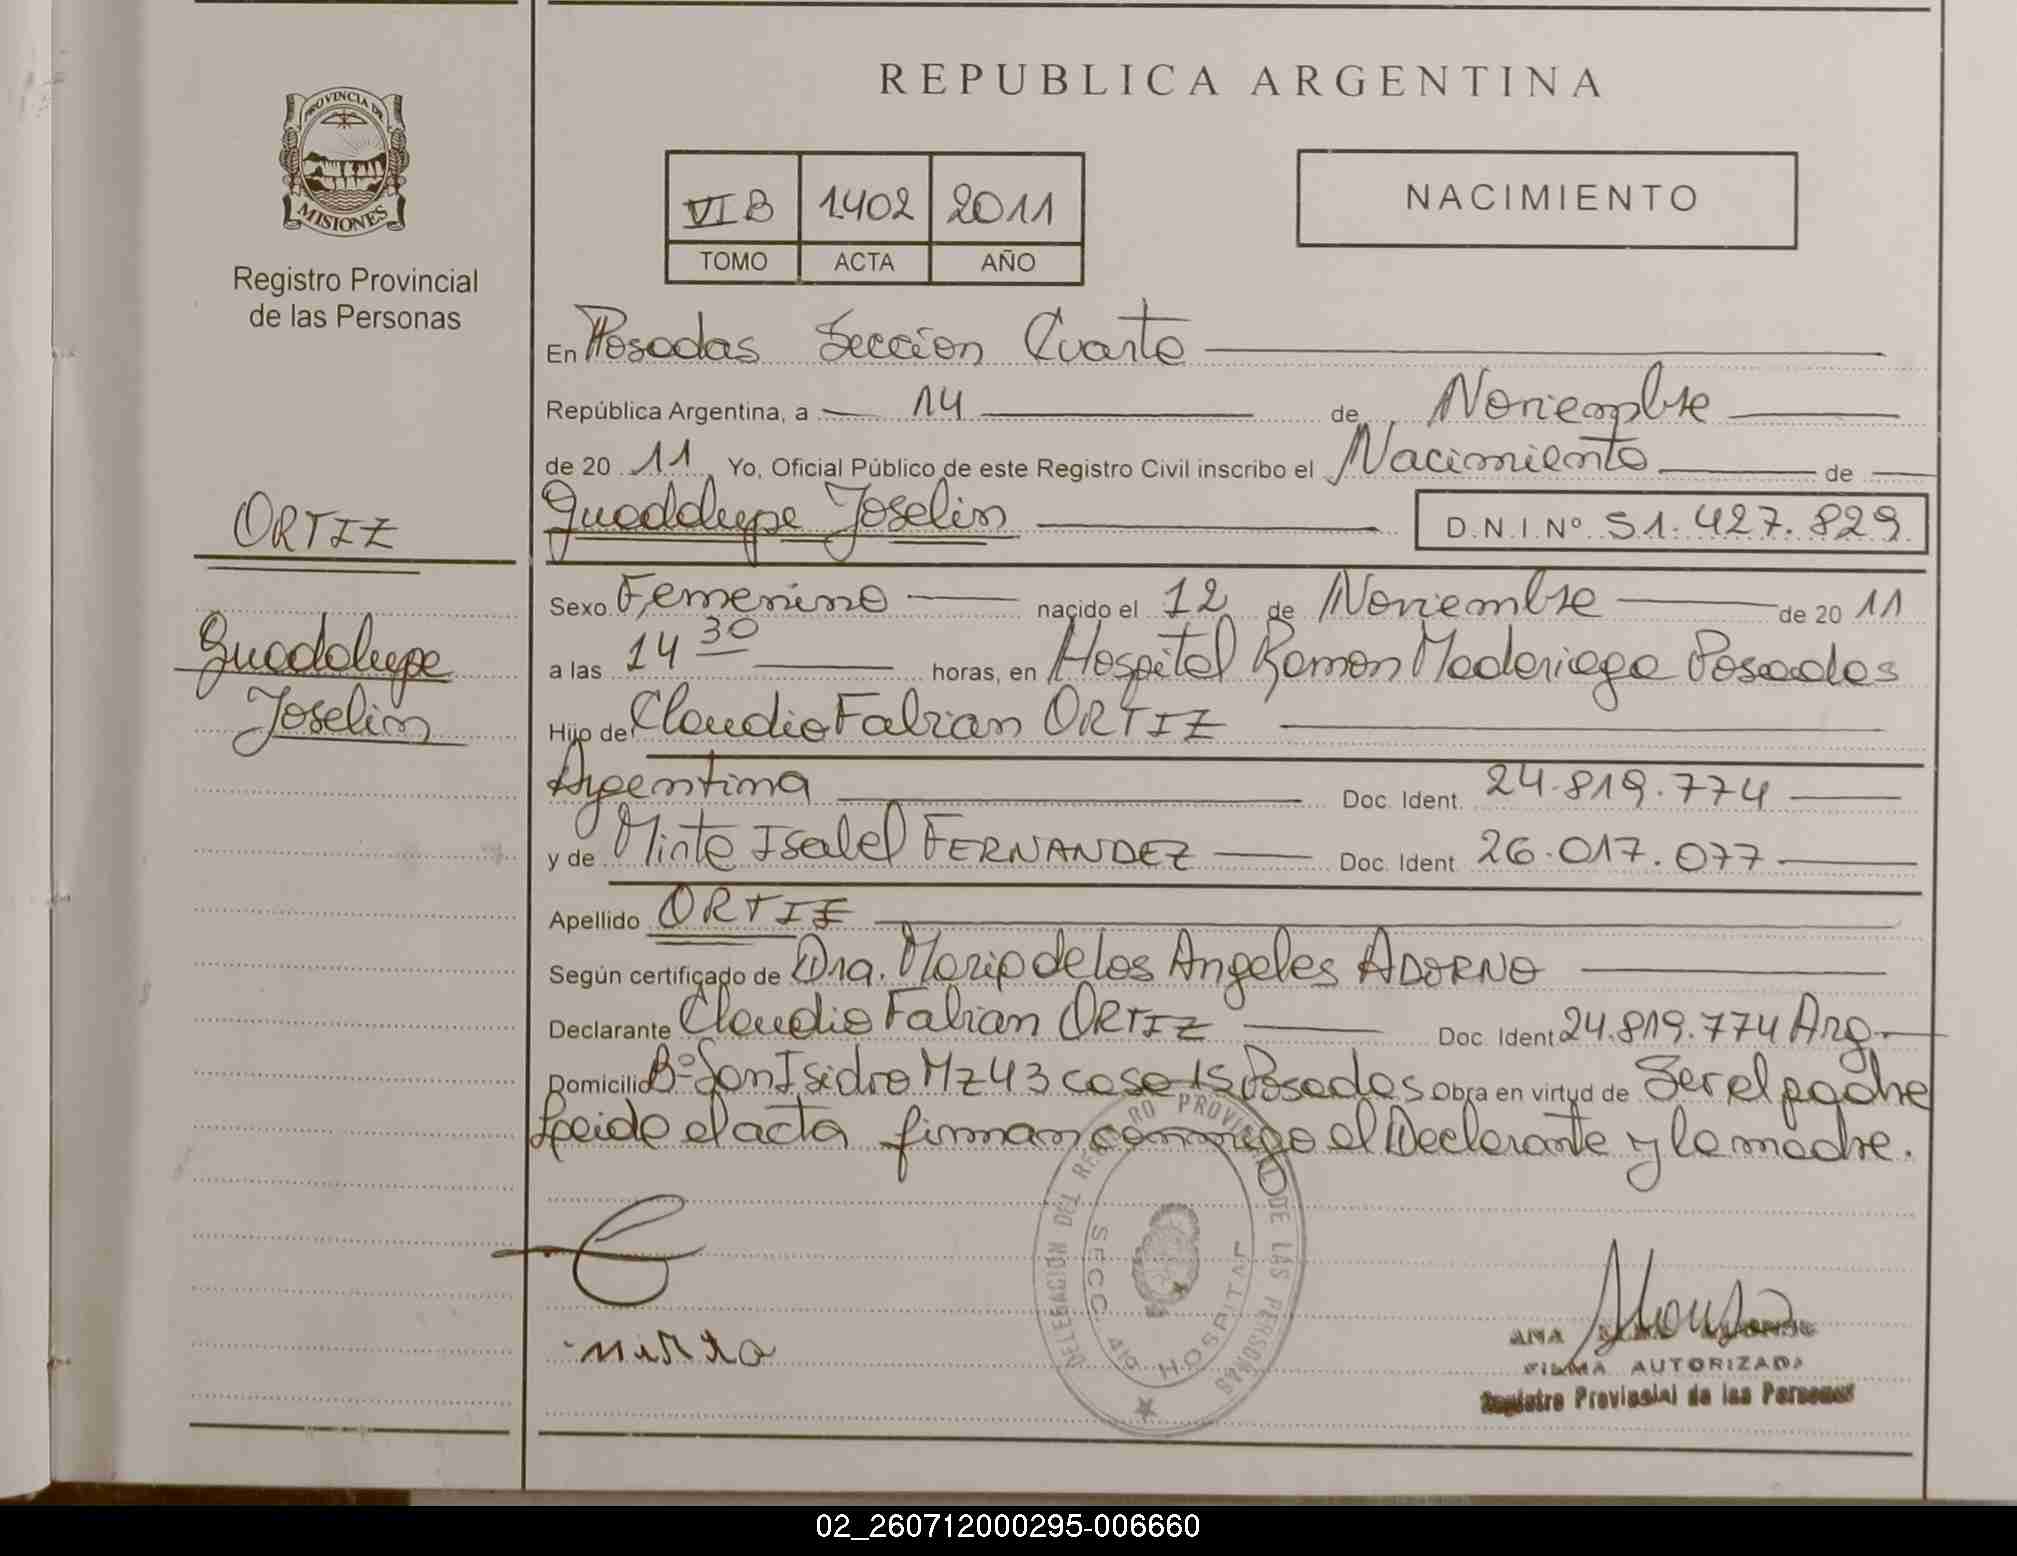 REPUBLICA ARGENTINA
PROVINCIA DE
MISIONES
Registro Provincial
de las Personas
VI B 1402 2011
TOMO ACTA AÑO
NACIMIENTO
En Posadas Sección Cuarta
República Argentina, a 14 de Noviembre
de 20 11 Yo, Oficial Público de este Registro Civil inscribo el Nacimiento de
Guadalupe Joselin D.N.I. Nº 51.427.829
ORTIZ
Guadalupe
Joselin
Sexo Femenino nacido el 12 de Noviembre de 20 11
a las 14 30 horas, en Hospital Ramon Madariaga Posadas
Hijo de Claudio Fabian ORTIZ
Argentina Doc. Ident. 24.819.774
y de Mirta Isabel FERNANDEZ Doc. Ident. 26.017.077
Apellido ORTIZ
Según certificado de Dra. Maria de los Angeles ADORNO
Declarante Claudio Fabian ORTIZ Doc. Ident 24.819.774 Arg.
Domicilio Bº San Isidro Mz 43 casa 15 Posadas Obra en virtud de Ser el padre
Leida el acta firman conmigo el Declarante y la madre.
DELEGACION DEL REGISTRO PROVINCIAL DE LAS PERSONAS
SECC. 4ta HOSPITAL
mirta
ANA
FIRMA AUTORIZADA
Registro Provincial de las Personas
02_260712000295-006660